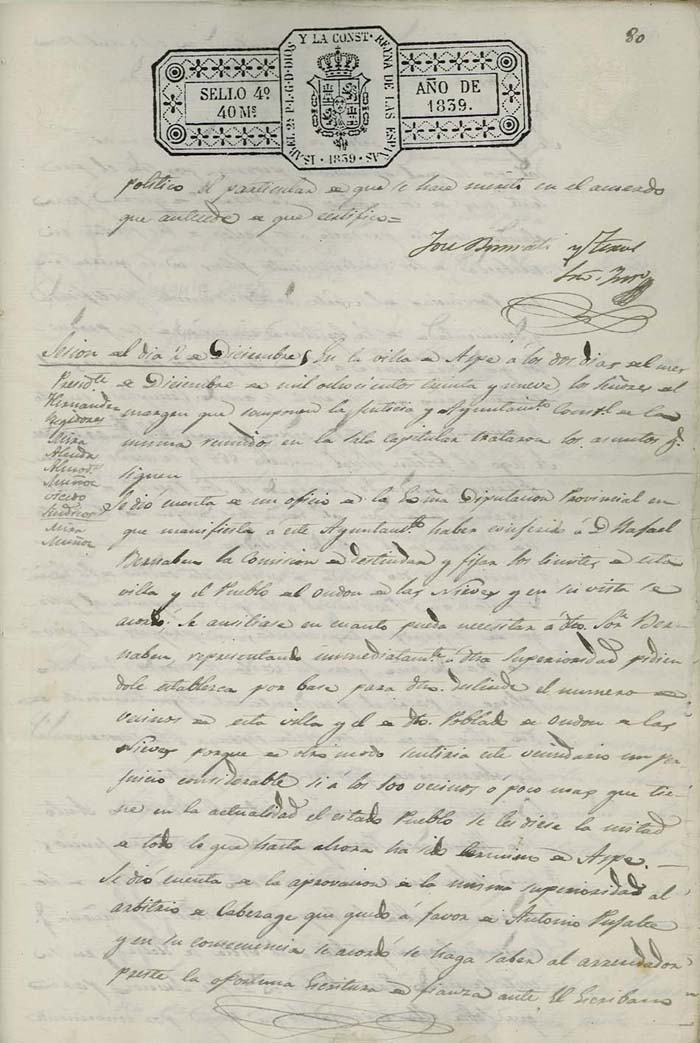 80
SELLO 4º
40 Mˢ
ISABEL 2ª P.L.G.D.DIOS Y LA CONST. REYNA DE LAS ESPAÑAS
· 1839 ·
AÑO DE
1839.
politico el particular de que se hace merito en el acuerdo
que antecede de que certifico=
Jose
Sesion del dia 2 de Diciembre
En la villa de Aspe á los dos dias del mes
de Diciembre de mil ochocientos treinta y nueve los Señores del
margen que componen la Justicia y Ayuntamᵗᵒ Constˡ de la
misma reunidos en la Sala Capitular trataron los asuntos qᵉ
siguen
Presidᵗᵉ
Hernandez
Regidores
Mira
Almodⁿ
Muñoz
Vicedo
Sindicos
Mira
Muñoz
Se dió cuenta de un oficio de la Exma Diputacion Provincial en
que manifiesta a este Ayuntamᵗᵒ haber conferido á D. Rafael
Bernabeu la Comision de deslindar y fijar los limites de esta
villa y el Pueblo del Ondon de las Nieves y en su vista se
acordó, Se auxiliase en cuanto pueda necesitar á dho. Sᵒʳ Ber-
nabeu, representando inmediatamᵗᵉ á dha Superioridad pidien
dole establezca por base para dho. deslinde el numero de
vecinos de esta villa y el de dho. Poblado de Ondon de las
Nieves porque de otro modo sentiria este vecindario un per-
juicio considerable si á los 100 vecinos, ó poco mas que tie-
ne en la actualidad el citado Pueblo se les diese la mitad
de todo lo que hasta ahora ha sido termino de Aspe.
Se dió cuenta de la aprovacion de la misma superioridad al
arbitrio de Caberage que quedo á favor de Antonio Pujalte
y en su consecuencia se acordó se haga saber al arrendador
preste la oportuna Escritura de fianza ante El Escribano